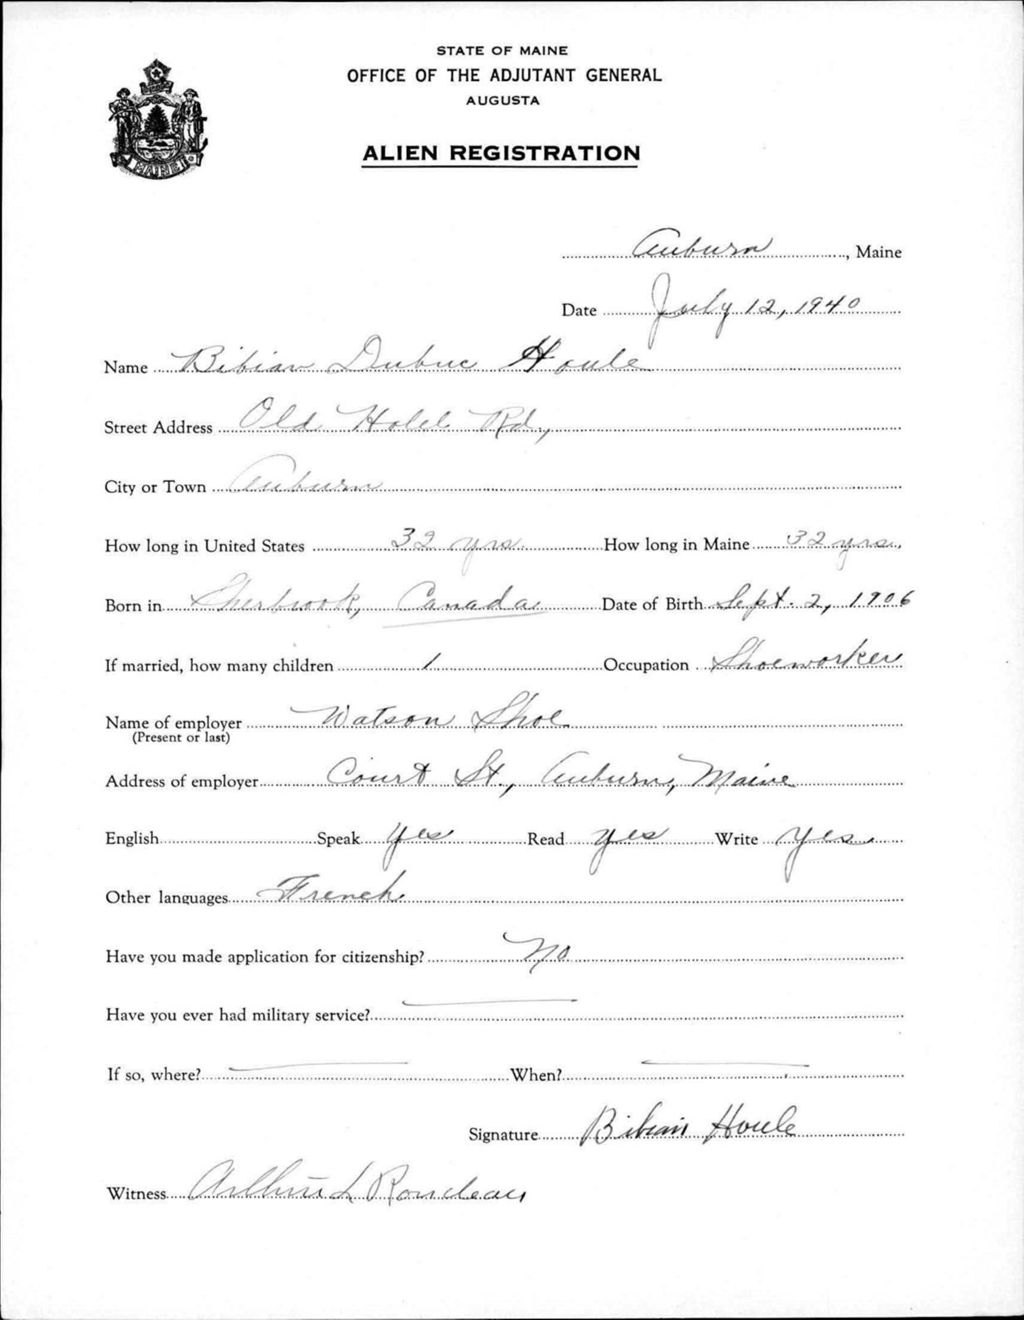 STATE OF MAINE
OFFICE OF THE ADJUTANT GENERAL
AUGUSTA
ALIEN REGISTRATION
MAINE
Auburn, Maine
Date July 12, 1940
Name Bibian Dubuc Houle
Street Address Old Hotel Rd.,
City or Town Auburn
How long in United States 32 yrs How long in Maine 32 yrs.
Born in Sherbrook, Canada Date of Birth Sept. 2, 1906
If married, how many children 1 Occupation Shoeworker
Name of employer Watson Shoe
(Present or last)
Address of employer Court St., Auburn, Maine
English Speak yes Read yes Write yes
Other languages French
Have you made application for citizenship? No
Have you ever had military service?
If so, where? When?
Signature Bibian Houle
Witness Arthur L Rondeau